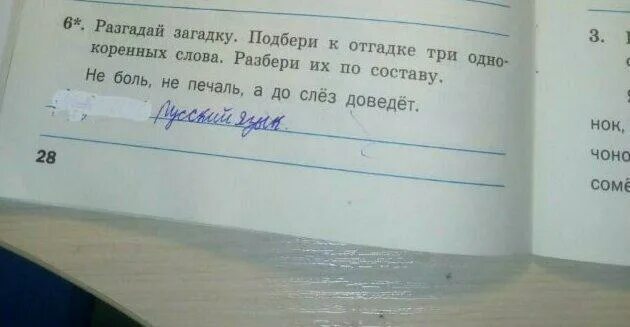 6*. Разгадай загадку. Подбери к отгадке три одно-
коренных слова. Разбери их по составу.
Не боль, не печаль, а до слёз доведёт.
Русский язык.
28
3.
нок,
чоно
сомё